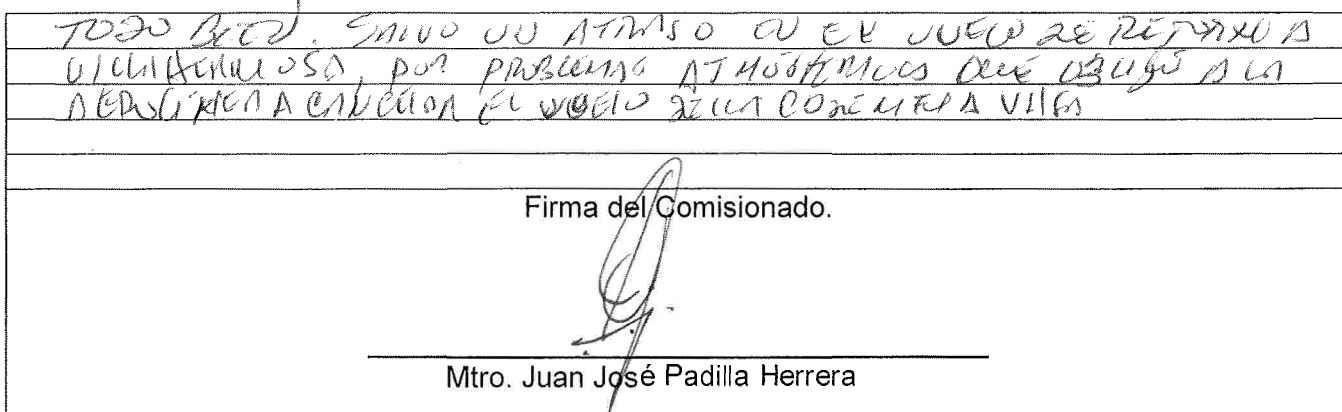 TODO BIEN. SALVO UN ATRASO EN EL VUELO DE RETORNO A
VILLAHERMOSA, POR PROBLEMAS ATMOSFERICOS QUE OBLIGÓ A LA
AEROLINEA A CANCELAR EL VUELO DE LA CDMX A VILLA
Firma del Comisionado.
Mtro. Juan José Padilla Herrera